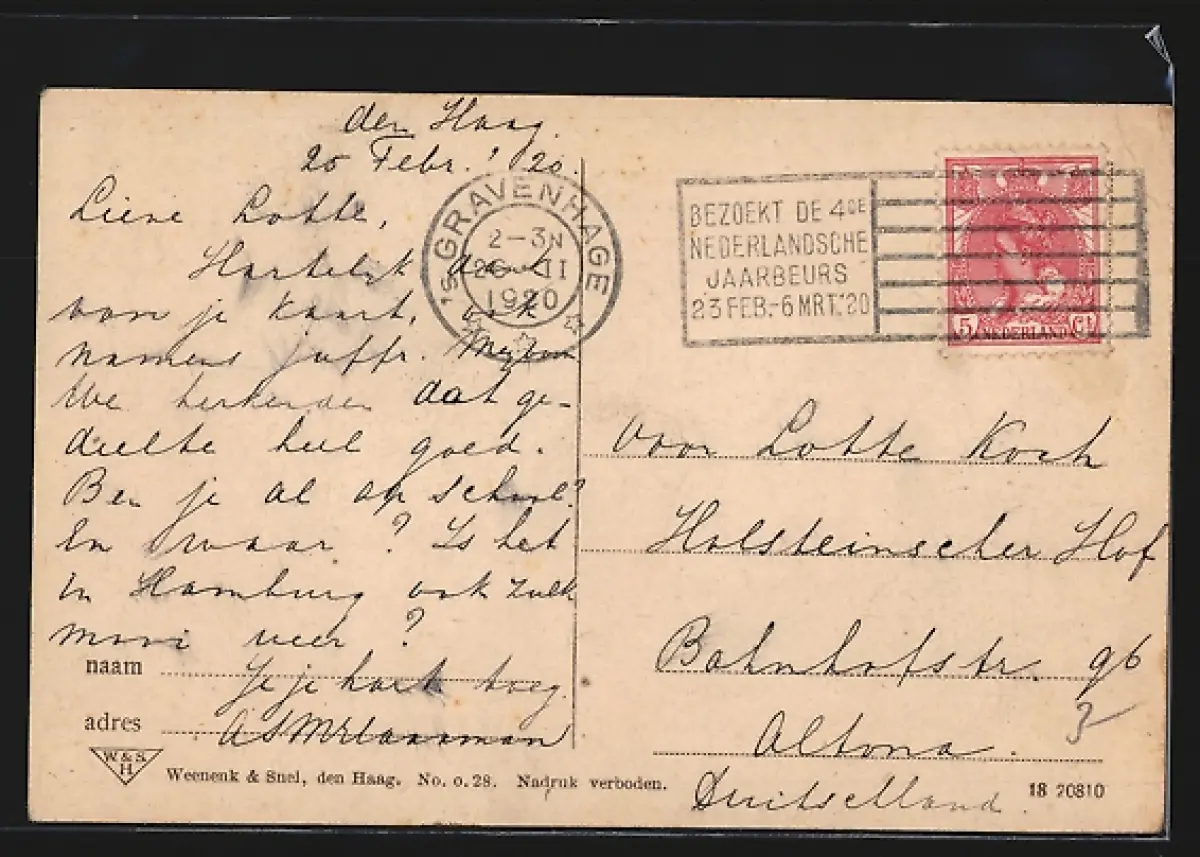 den Haag.
20 Febr. '20.
Lieve Lotte,
Hartelijk dank
van je kaart, ook
namens juffr.
We herkenden dat ge-
deelte heel goed.
Ben je al op school?
En waar? Is het
in Hamburg ook zulk
mooi weer?
naam
adres
W. & S.
H
Weenenk & Snel, den Haag. No. 0.28. Nadruk verboden.
'S GRAVENHAGE
2-3N
II
1920
BEZOEKT DE 4DE
NEDERLANDSCHE
JAARBEURS
23 FEB.-6 MRT.'20
5 NEDERLAND Ct
Voor Lotte Koch
Holsteinscher Hof
Bahnhofstr. 96
3
Altona.
Duitschland.
18 20810